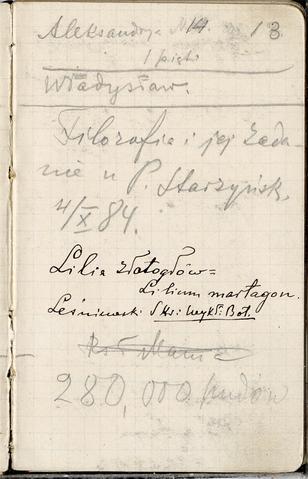 Aleksandrja № 14. 13
1 piętr
Władysław.
Filozofia i jej zada-
nie u P. Starzyńsk.
4/X 84.
Lilia złotogłów=
Lilium martagon.
Leśniewski Sks: wykł: Bot.
280,000 pudów